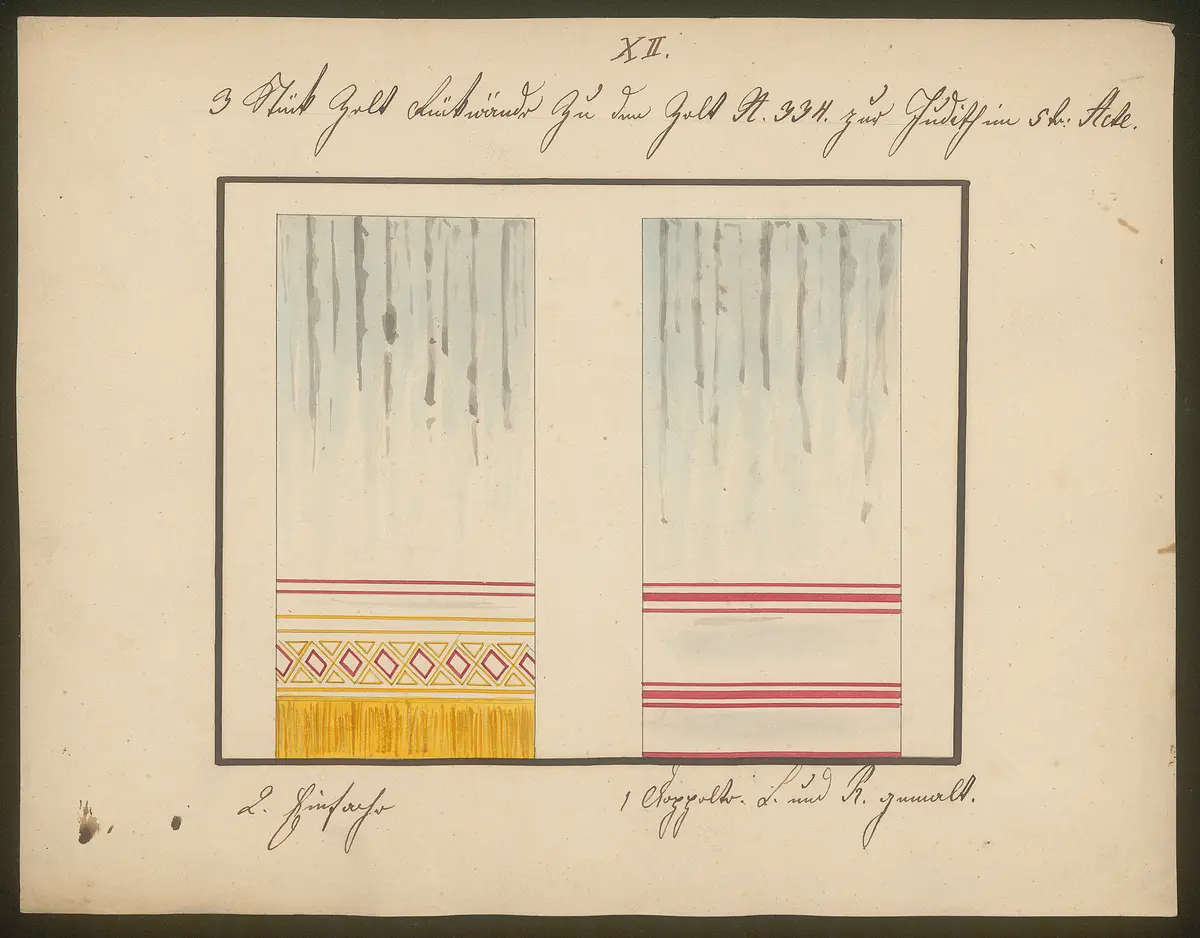 XII.
3 Stück Zelt Rückwände Zu den Zelt N. 334. zur Judith im 5tr: Acte.
2. Einfache
1 Doppelte. L. und R. gemalt.